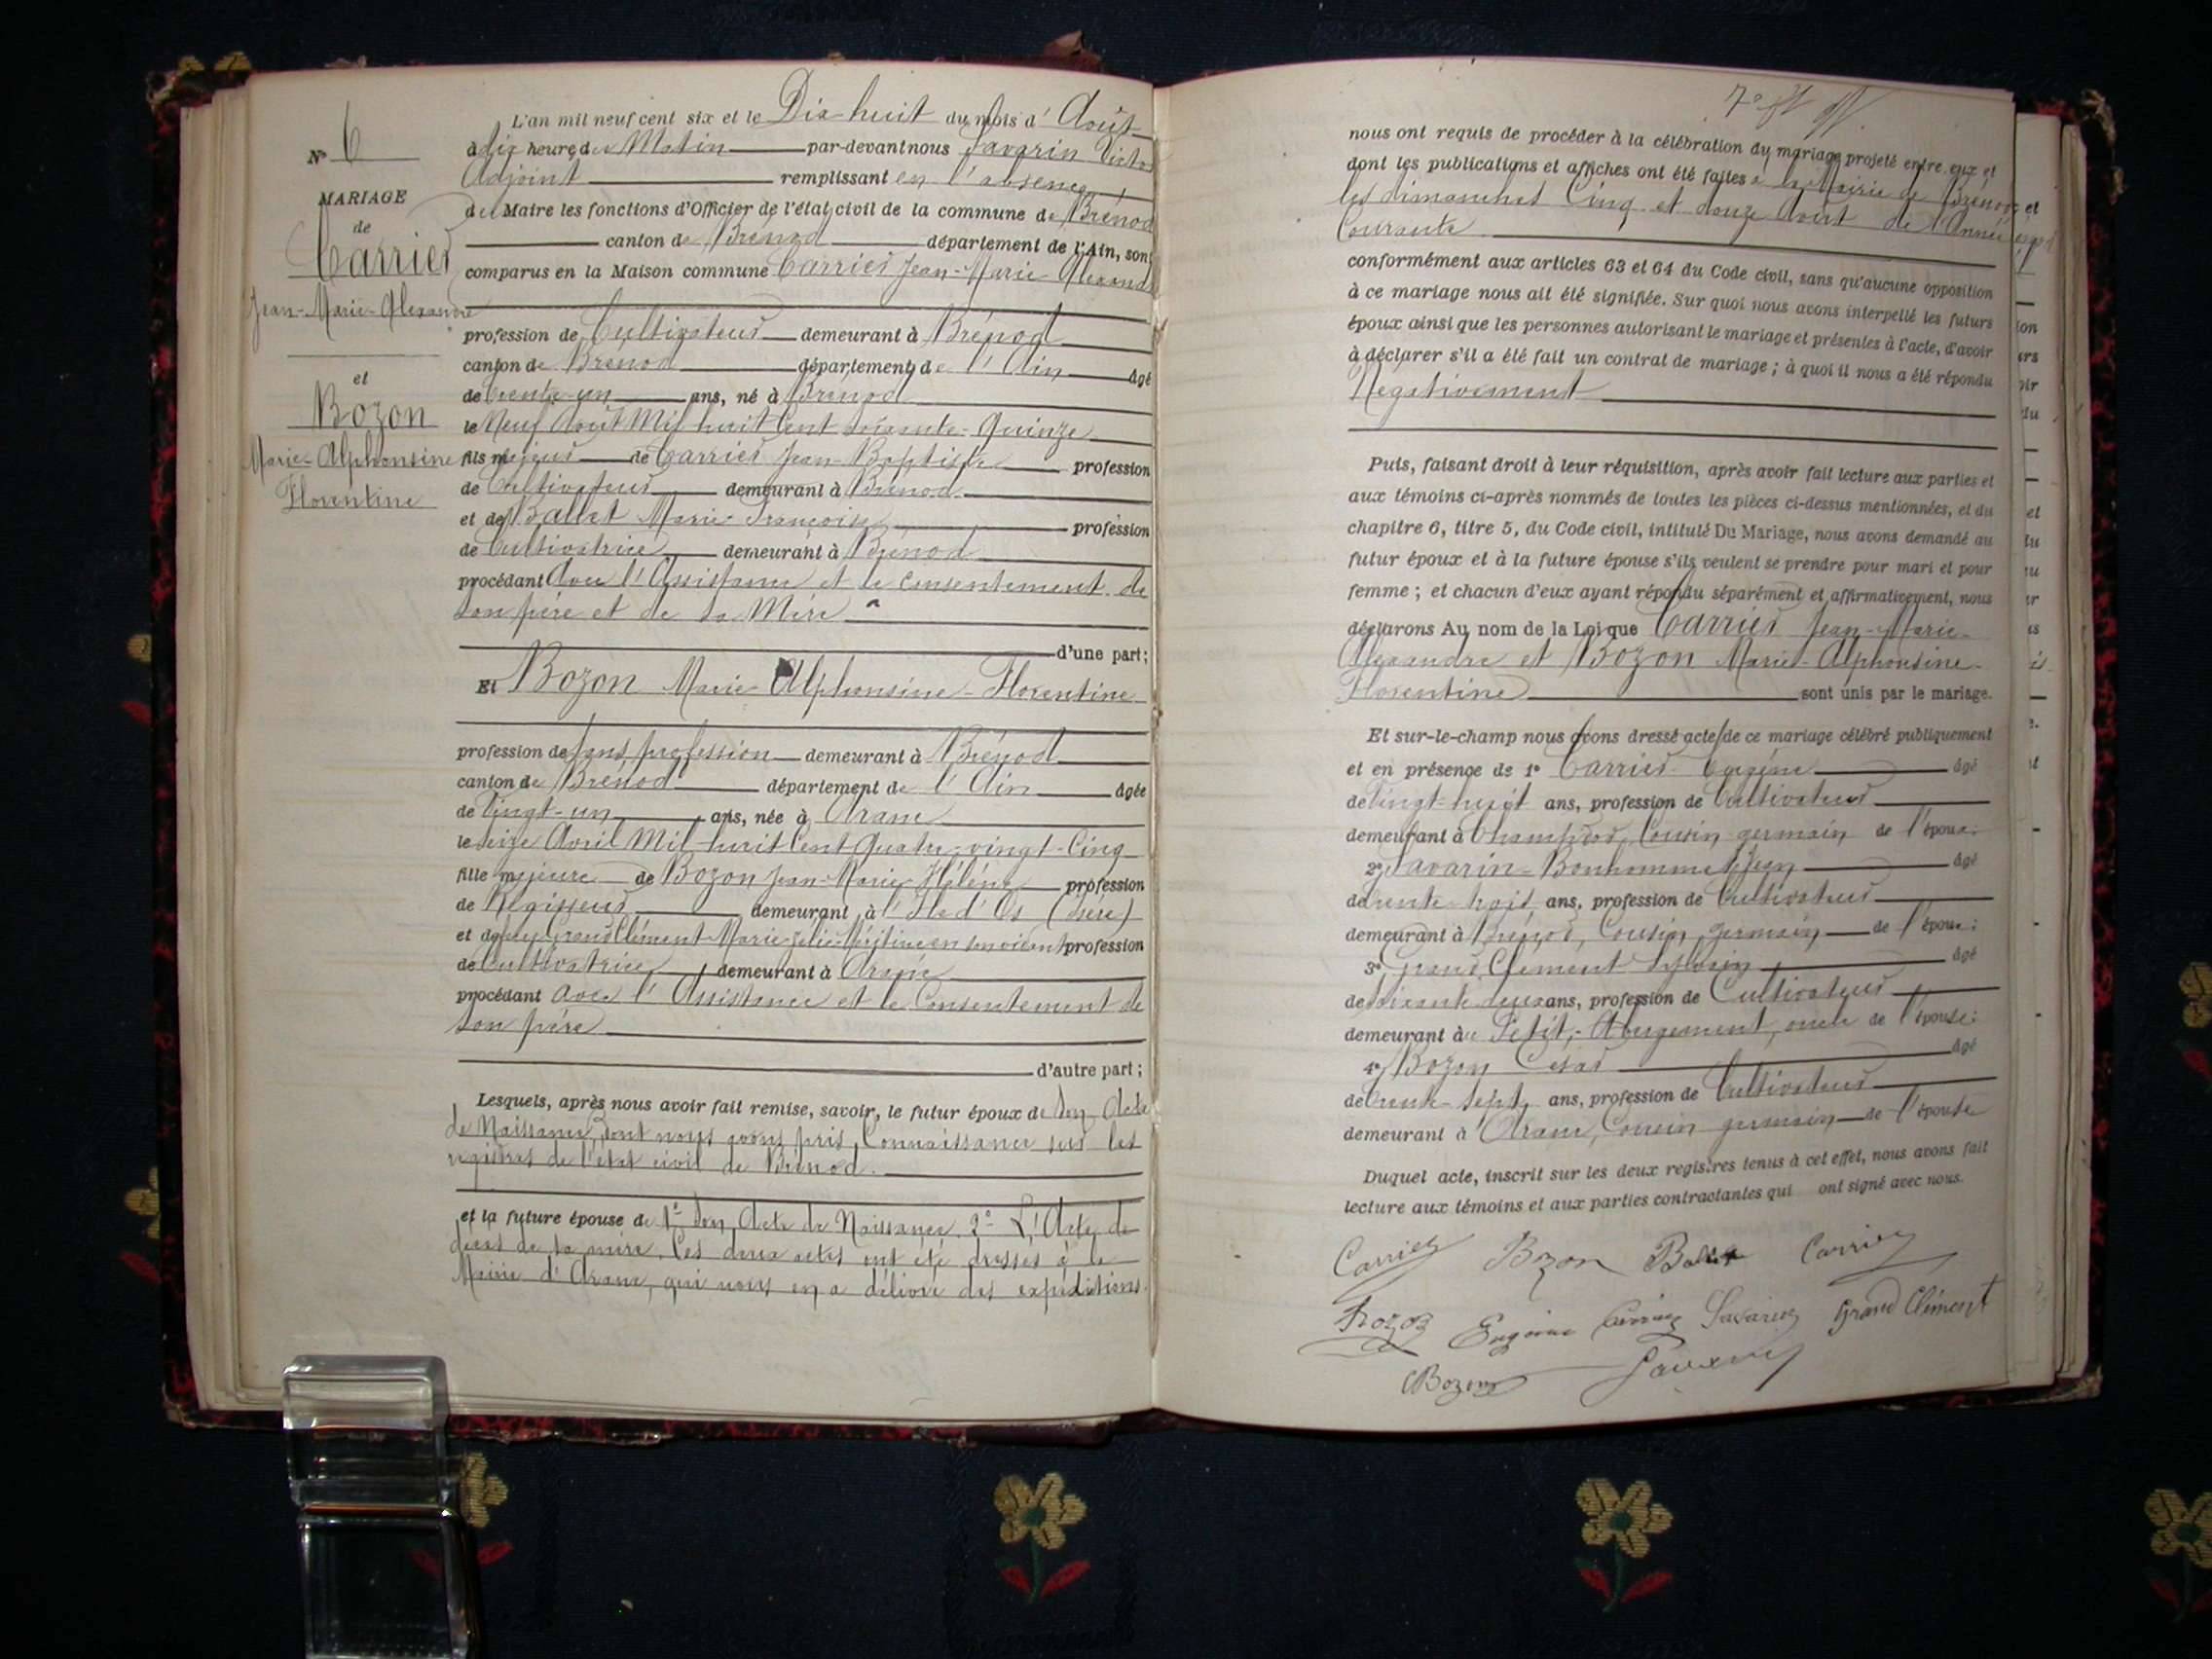 N° 6
MARIAGE
de
Carrier
Jean-Marie-Alexandre
et
Bozon
Marie-Alphonsine
Florentine
L'an mil neuf cent six et le Dix-huit du mois d'Août
à dix heures du Matin par-devant nous Savarin Victor
Adjoint remplissant en l'absence
du Maire les fonctions d'Officier de l'état civil de la commune de Brénod
canton de Brénod département de l'Ain, sont
comparus en la Maison commune Carrier Jean-Marie Alexandre
profession de Cultivateur demeurant à Brénod
canton de Brénod département de l'Ain âgé
de trente-un ans, né à Brénod
le Neuf Août Mil huit Cent soixante-Quinze
fils majeur de Carrier Jean-Baptiste profession
de Cultivateur demeurant à Brénod
et de Ballet Marie Françoise profession
de Cultivatrice demeurant à Brénod
procédant avec l'Assistance et le consentement de
son père et de sa Mère
d'une part;
Et Bozon Marie-Alphonsine-Florentine
profession de sans profession demeurant à Brénod
canton de Brénod département de l'Ain âgée
de Vingt-un ans, née à Aranc
le seize Avril Mil huit Cent Quatre-vingt-Cinq
fille majeure de Bozon Jean-Marie profession
de Régisseur demeurant à l'Ile d' (Isère)
et de Grand Clément Marie en son vivant profession
de cultivatrice demeurant à Aranc
procédant avec l'Assistance et le Consentement de
son père
d'autre part;
Lesquels, après nous avoir fait remise, savoir, le futur époux de son Acte
de Naissance, dont nous avons pris Connaissance sur les
registres de l'état civil de Brénod.
et la future épouse de 1° Son Acte de Naissance. 2° L'Acte de
décès de sa mère. Ces deux actes ont été dressés à la
Mairie d'Aranc, qui nous en a délivré des expéditions.
nous ont requis de procéder à la célébration du mariage projeté entre eux et
dont les publications et affiches ont été faites à la Mairie de Brénod
les dimanches Cinq et douze Août de l'Année
Courante
conformément aux articles 63 et 64 du Code civil, sans qu'aucune opposition
à ce mariage nous ait été signifiée. Sur quoi nous avons interpellé les futurs
époux ainsi que les personnes autorisant le mariage et présentes à l'acte, d'avoir
à déclarer s'il a été fait un contrat de mariage; à quoi il nous a été répondu
Négativement
Puis, faisant droit à leur réquisition, après avoir fait lecture aux parties et
aux témoins ci-après nommés de toutes les pièces ci-dessus mentionnées, et du
chapitre 6, titre 5, du Code civil, intitulé Du Mariage, nous avons demandé au
futur époux et à la future épouse s'ils veulent se prendre pour mari et pour
femme; et chacun d'eux ayant répondu séparément et affirmativement, nous
déclarons Au nom de la Loi que Carrier Jean-Marie-
Alexandre et Bozon Marie-Alphonsine-
Florentine sont unis par le mariage.
Et sur-le-champ nous avons dressé acte de ce mariage célébré publiquement
et en présence de 1° Carrier Eugène âgé
de Vingt-huit ans, profession de Cultivateur
demeurant à Champdor, Cousin germain de l'époux;
2° Savarin-Bonhomme âgé
de trente-trois ans, profession de Cultivateur
demeurant à Brénod, Cousin germain de l'époux;
3° Grand Clément Sylvain âgé
de Soixante ans, profession de Cultivateur
demeurant au Petit-Abergement, oncle de l'épouse;
4° Bozon César âgé
de trente-sept ans, profession de Cultivateur
demeurant à Aranc, Cousin germain de l'épouse
Duquel acte, inscrit sur les deux registres tenus à cet effet, nous avons fait
lecture aux témoins et aux parties contractantes qui ont signé avec nous.
Carrier Bozon Ballet Carrier
Bozon Eugène Carrier Savarin Grand Clément
Bozon Savarin